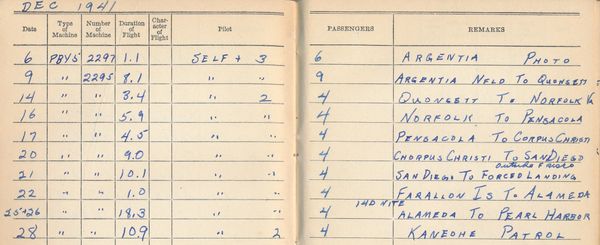 DEC 1941
Date Type of Machine Number of Machine Duration of Flight Char-acter of Flight Pilot PASSENGERS REMARKS
6 PBY5 2297 1.1 SELF + 3 6 ARGENTIA PHOTO
9 " 2295 8.1 " " 9 ARGENTIA NFLD TO QUONSETT
14 " " 3.4 " 2 4 QUONSETT TO NORFOLK VA
16 " " 5.9 " " 4 NORFOLK TO PENSACOLA
17 " " 4.5 " " 4 PENSACOLA TO CORPUS CHRISTI
20 " " 9.0 " " 4 CHORPUS CHRISTI TO SAN DIEGO
outside Frisco
21 " " 10.1 " " 4 SAN DIEGO TO FORCED LANDING
22 " " 1.0 " " 4 FARALLON IS TO ALAMEDA
25+26 " " 18.3 " " 4 14D NITE ALAMEDA TO PEARL HARBOR
28 " " 10.9 " 2 4 KANEOHE PATROL